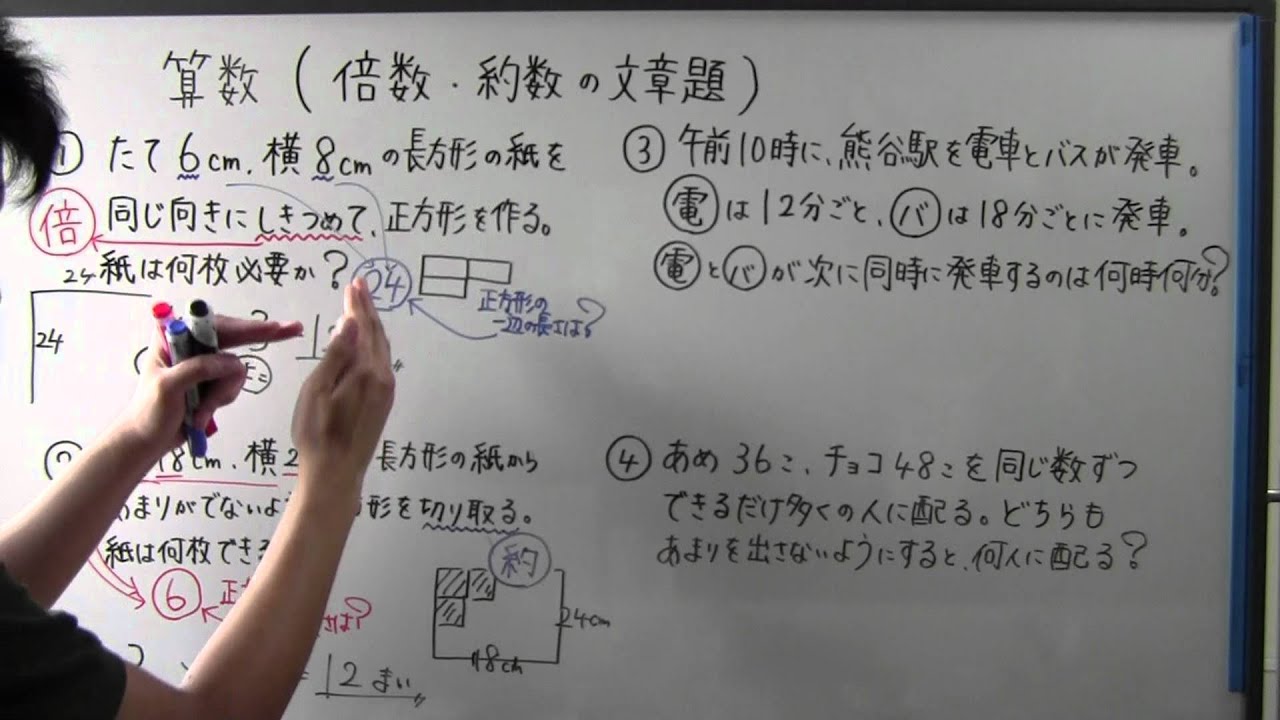 算数(倍数・約数の文章題)
① たて6cm、横8cmの長方形の紙を
倍 同じ向きにしきつめて、正方形を作る。
紙は何枚必要か?
24
24
24
正方形の
一辺の長さは?
3
18cm、横2 長方形の紙から
あまりがでないよう 形を切り取る。
紙は何枚でき
約
6
正
さは?
24cm
18cm
= 12まい
③ 午前10時に、熊谷駅を電車とバスが発車。
電は12分ごと、バは18分ごとに発車。
電とバが次に同時に発車するのは何時何分?
④ あめ36こ、チョコ48こを同じ数ずつ
できるだけ多くの人に配る。どちらも
あまりを出さないようにすると、何人に配る?